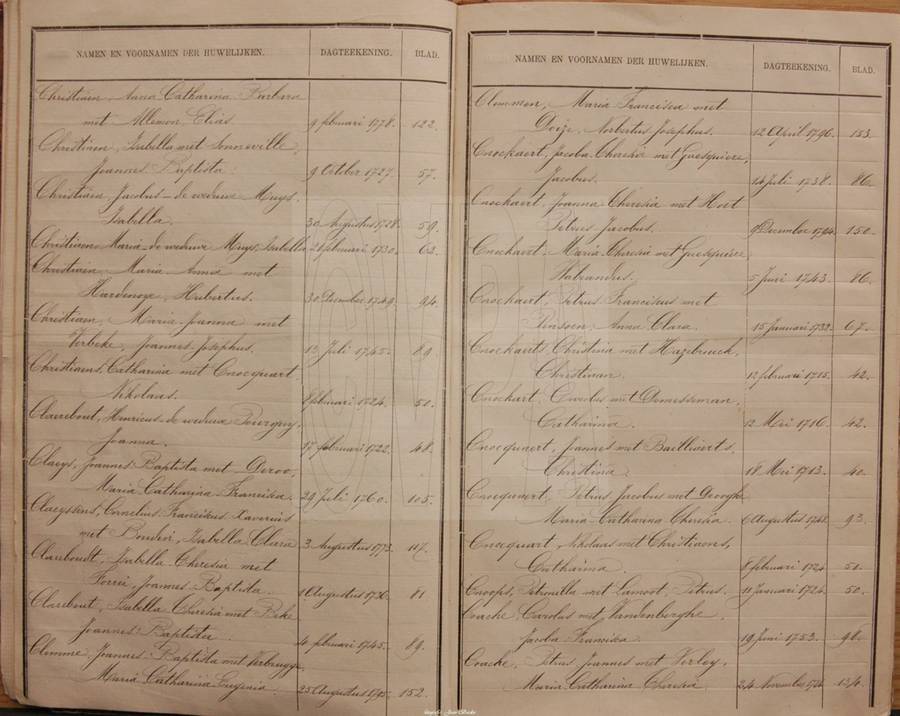 NAMEN EN VOORNAMEN DER HUWELIJKEN. DAGTEEKENING. BLAD.
Christiaen, Anna Catharina Barbara
met Allemon, Elias. 9 februari 1778. 122.
Christiaen, Isabella met Sonneville,
Joannes Baptista. 9 October 1727. 57.
Christiaen, Jacobus de weduwe Muys,
Isabella. 30 Augustus 1728. 59.
Christiaens Maria de weduwe Muys, Isabella 28 februari 1730. 63.
Christiaen Maria Anna met
Hubertus. 30 December 1749. 94.
Christiaen, Maria Joanna met
Verbeke, Joannes Josephus. 12 Juli 1745. 89.
Christiaens, Catharina met Cnocquart
Nikolaas. 8 februari 1724. 50.
Claerebout, Henricus de weduwe
Joanna. 17 februari 1722. 48.
Claeys, Joannes Baptista met Deroo,
Maria Catharina Franciska. 29 Juli 1760. 105.
Claeyssens, Cornelius Franciskus Xaverius
met Isabella Clara 3 Augustus 1773. 117.
Clareboudt, Isabella Theresia met
Joannes Baptista. 1 Augustus 1736. 81
Clarebout, Isabella Theresia met Beke
Joannes Baptista. 4 februari 1745. 89.
Clemme, Joannes Baptista met Verbrugge,
Maria Catharina Eugenia. 25 Augustus 1795. 152.
NAMEN EN VOORNAMEN DER HUWELIJKEN. DAGTEEKENING. BLAD.
Clemmen, Maria Francisca met
Norbertus Josephus. 12 April 1796. 153.
Cnockaert, Jacoba Theresia met Guesquiere,
Jacobus. 14 Juli 1738. 86.
Cnockaert, Joanna Theresia met Hoet
Petrus Jacobus. 9 December 1794. 150.
Cnockaert, Maria Theresia met Guesquiere
5 Juni 1743. 86.
Cnockaert, Petrus Franciskus met
Anna Clara. 15 Januari 1732. 67.
Cnockaerts, Christina met Hazebrouck,
Christiaan. 12 februari 1715. 42.
Cnockart, Carolus met
Catharina. 12 Mei 1716. 42.
Cnocquaert, Joannes met Bailliaerts,
Christina. 18 Mei 1713. 40.
Cnocquaert, Petrus Jacobus met
Maria Catharina Theresia. 6 Augustus 1748. 93.
Cnocquart, Nikolaas met Christiaens,
Catharina. 8 februari 1724. 50.
Cnoops, Petronella met Lamoot, Petrus. 11 Januari 1724. 50.
Coache, Carolus met Vandenberghe
Jacoba Franciska. 19 Juni 1753. 98.
Coache, Petrus Joannes met Verley,
Maria Catharina Theresia 24 November 134.